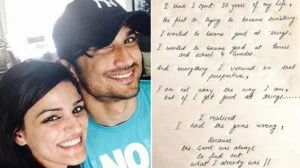 I think I spent 30 years of my life,
the first 30, trying to become something
I wanted to become good at things,
I wanted to become good at tennis
and school & grades.
And everything I viewed in that
perspective,
I am not okay the way I am,
but if I got good at things......
I realized
I had the game wrong,
Because
the Game was always
to find out
what I already was !!
NO